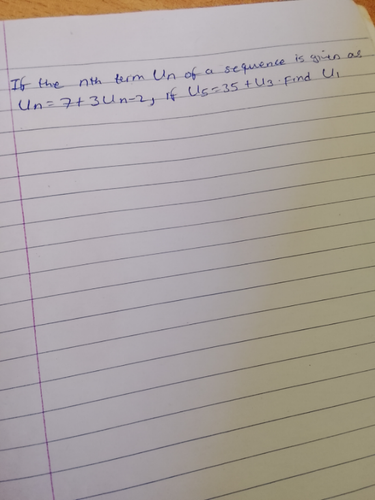 If the nth term Un of a sequence is given as
Un = 7 + 3Un-2, if U5 = 35 + U3. Find U1